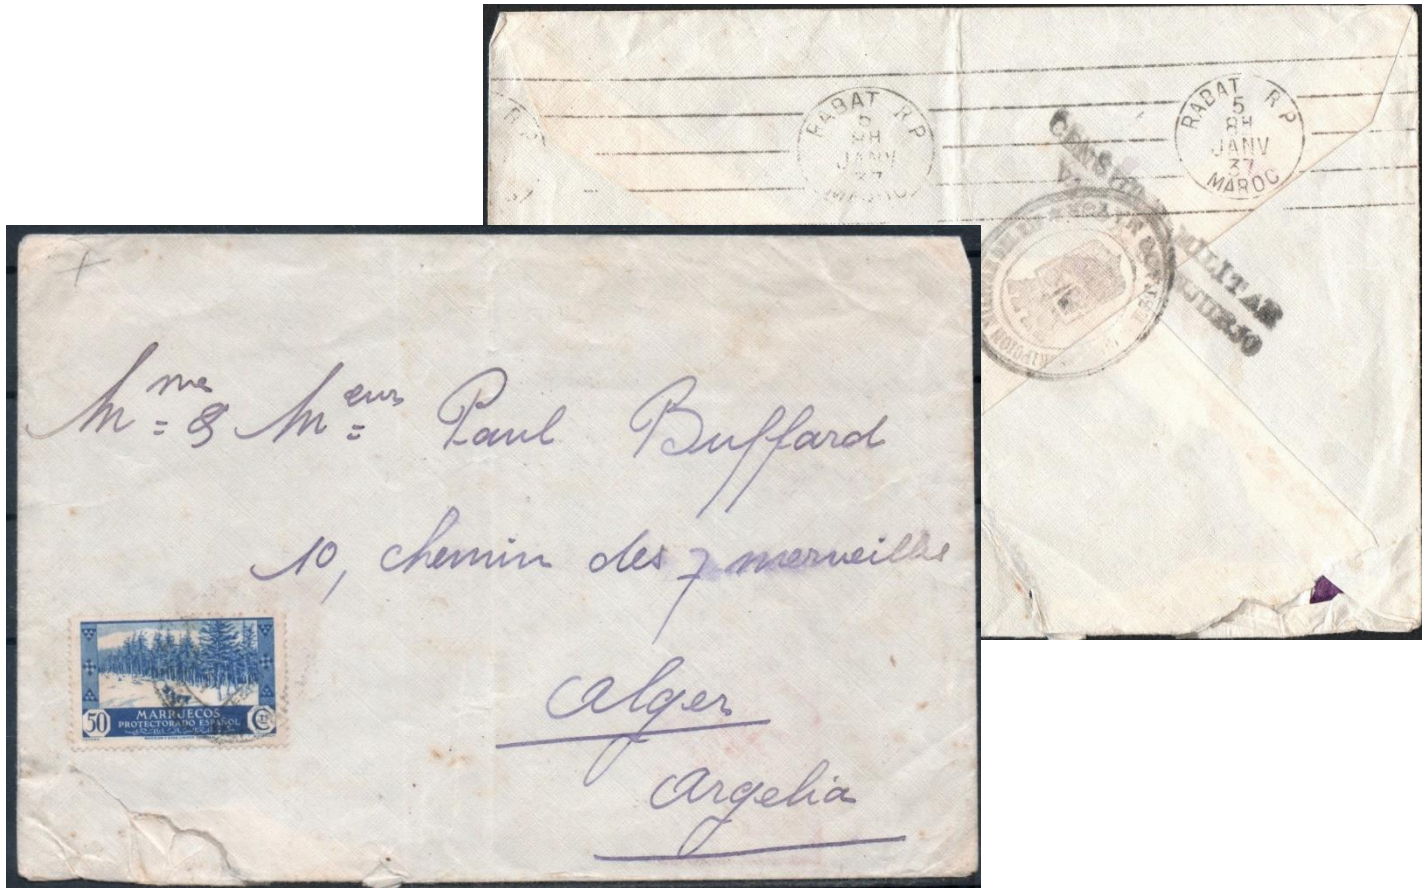 RABAT R P
5
8H
JANV
37
MAROC
RABAT R P
5
8H
JANV
37
R P
MILITAR
Mme & Meur Paul Buffard
10, chemin des 7 merveilles
Alger
Argelia
50
MARRUECOS
PROTECTORADO ESPAÑOL
Cts